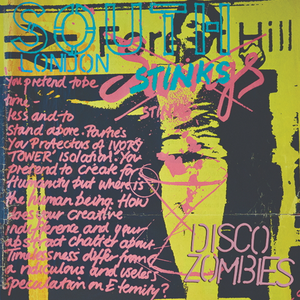 SOUTH
Hill
LONDON
STINKS
STINKS
You pretend to be
time
less and to
stand above Parties
You Protectors of IVORY
TOWER isolation. You
pretend to create for
Humanity but where is
the human being. How
does your creative
indifference and your
abstract chatter about
timelessness differ from
a ridiculous and useless
speculation on Eternity?
DISCO
ZOMBIES